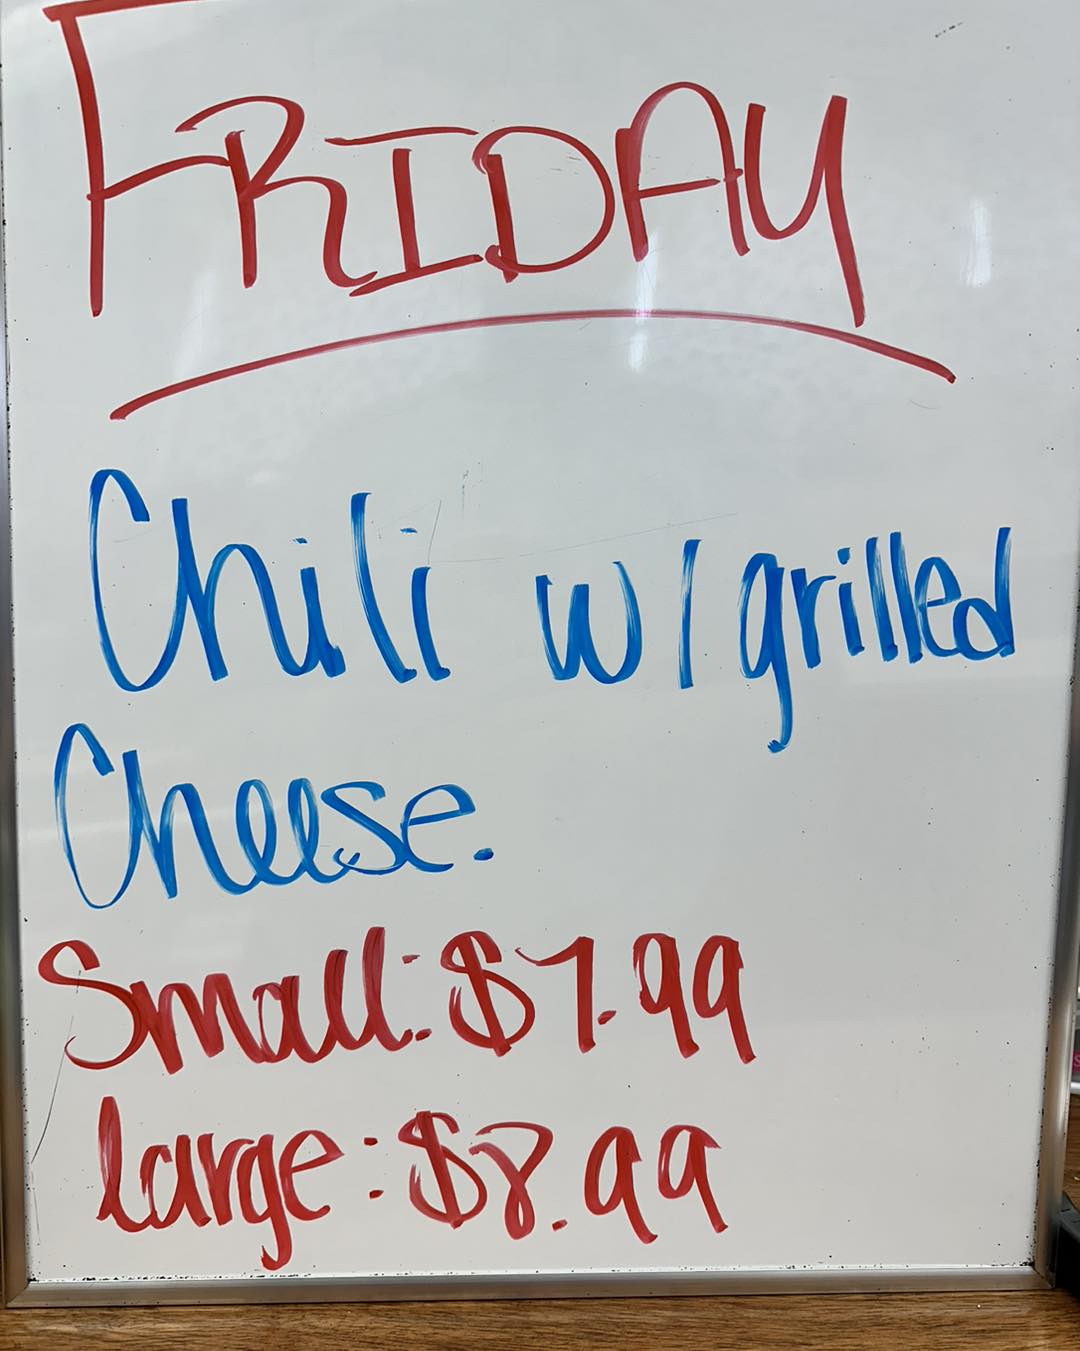 FRIDAY
Chili w/ grilled
Cheese.
Small: $7.99
large: $8.99